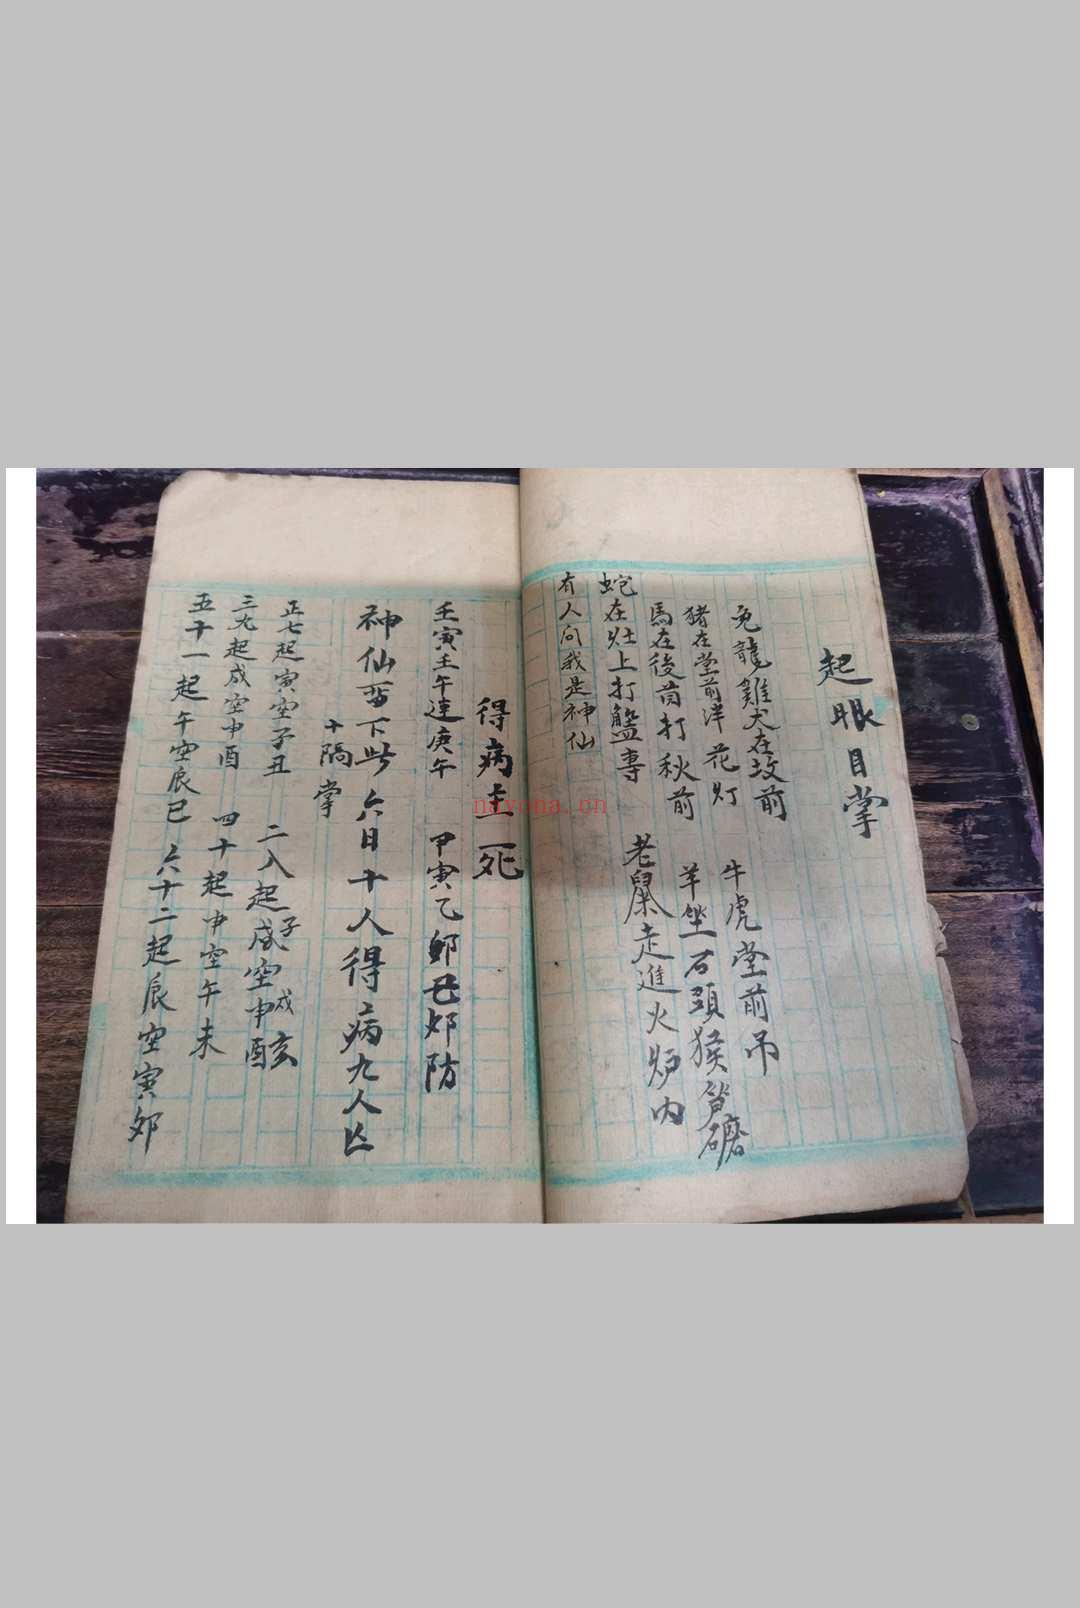 起眼目掌
兎龍雞犬在坟前 牛虎堂前吊
猪在堂前洋花灯 羊坐石頭猴筭磨
馬在後 打秋前 老鼠走進火炉内
蛇在灶上打 
有人问我是神仙
得病主死
壬寅壬午連庚午 甲寅乙卯己卯防
神仙留下此六日 十人得病九人亾
十隔掌
正七起寅空子丑 二八起子戌空申酉戌亥
三九起戌空申酉 四十起申空午未
五十一起午空辰巳 六十二起辰空寅卯
nayona.cn